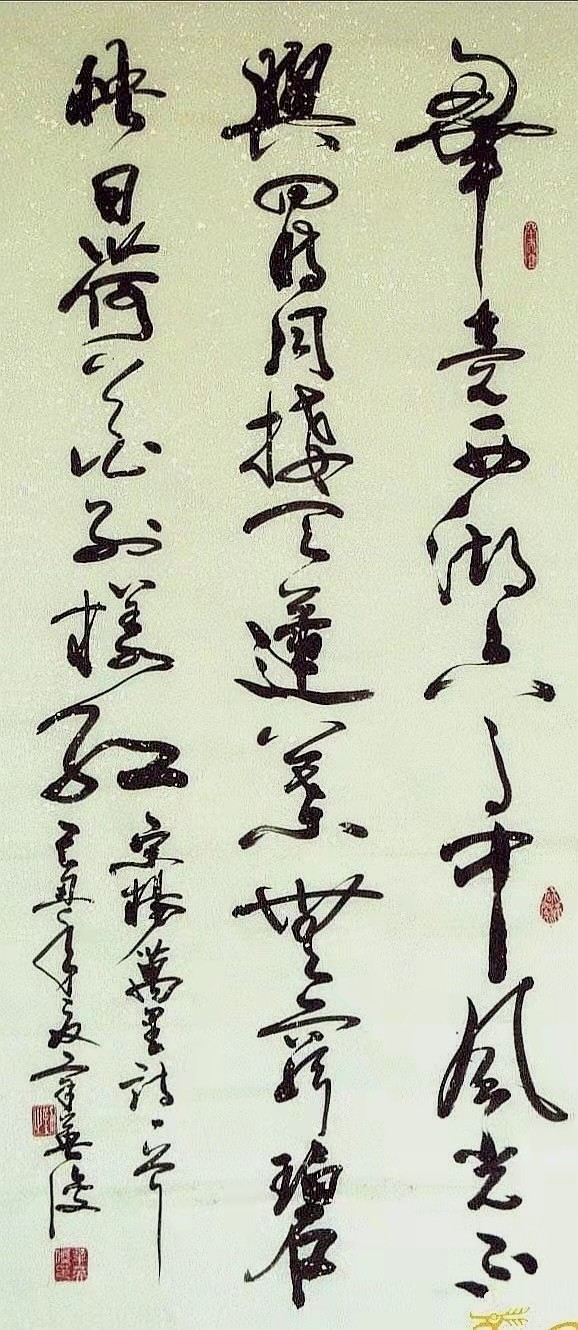 畢竟西湖六月中風光不
與四時同接天蓮葉無窮碧
映日荷花別樣紅
宋楊萬里詩一首
己丑年夏